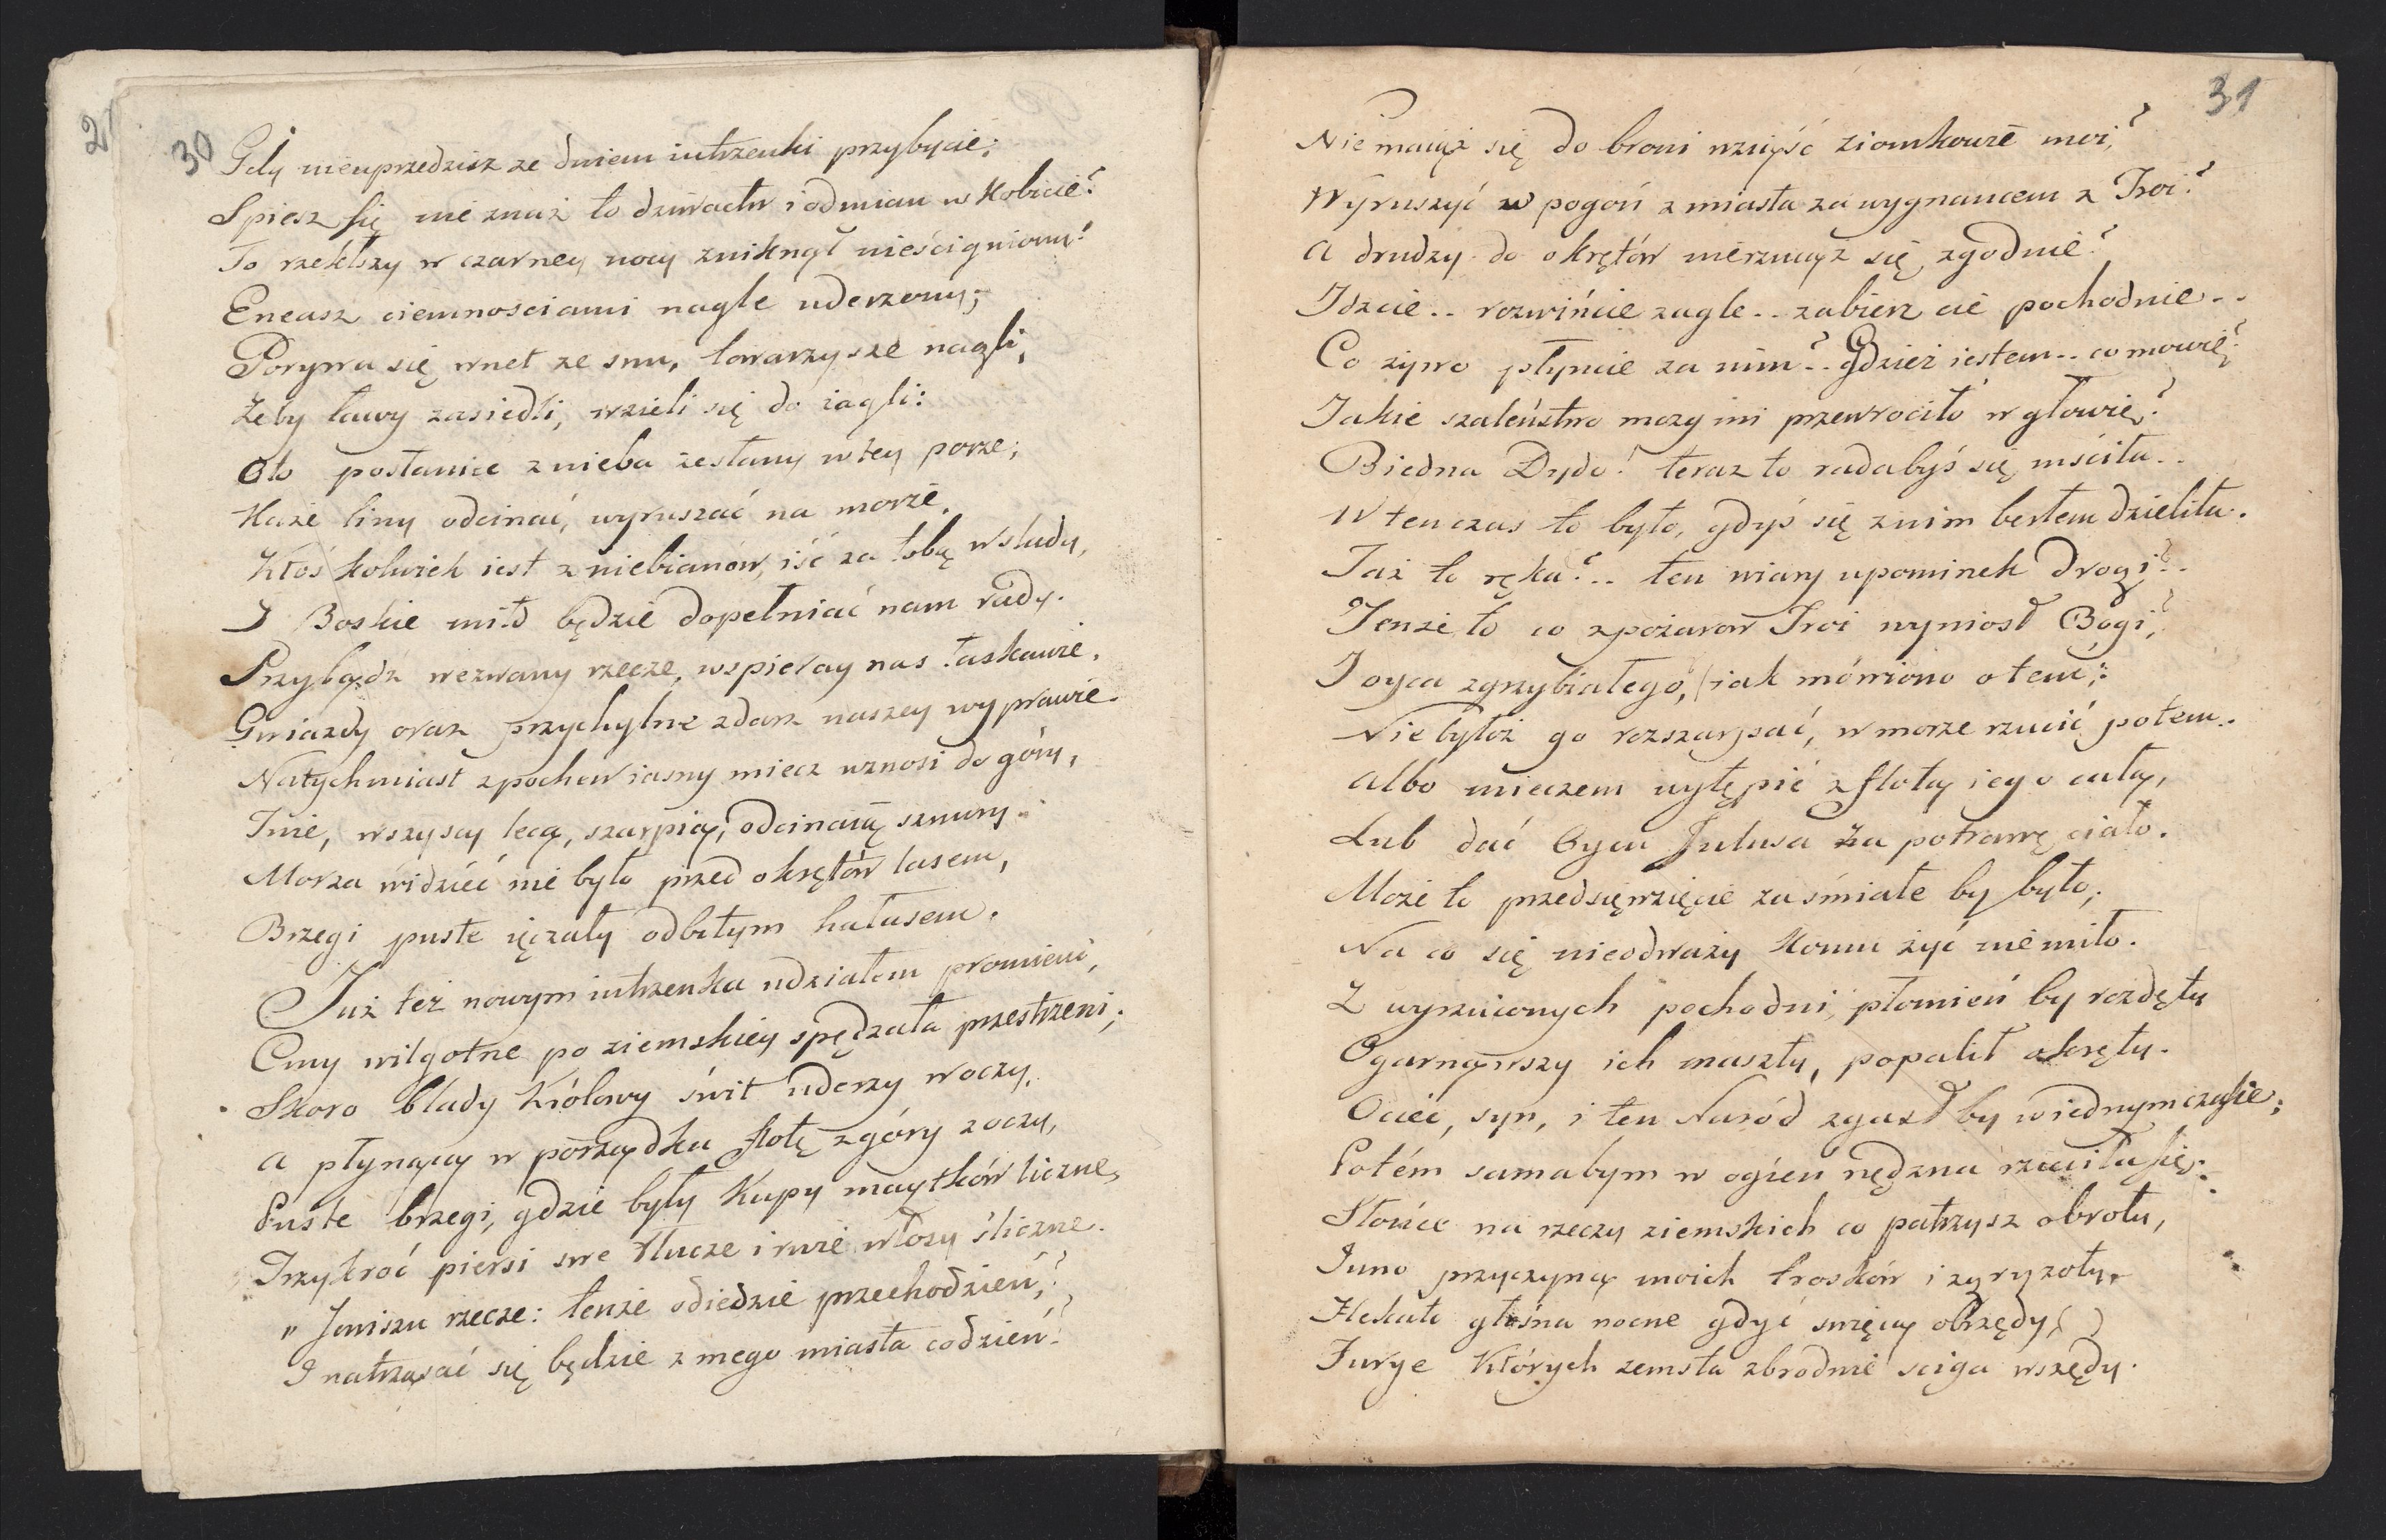 21
30
Gdy nieuprzedzisz ze dniem iutrzenki przybycie;
Spiesz się nie znaż to dziwactw i odmian w Kobicie?
To rzekłszy w czarney nocy zniknął nieścigniony!
Eneasz ciemnosciami nagle uderzony;
Porywa się wnet ze snu, towarzysze nagli;
Żeby ławy zasiedli, wzieli się do żagli:
Oto posłaniec z nieba zesłany w tey porze;
Każe liny odcinać, wyruszać na morze.
Ktoś kolwiek iest z niebianów, iść za tobą w slady,
I Boskie miło będzie dopełniać nam rady.
Przybądź wezwany rzecze, wspieray nas łaskawie,
Gwiazdy oraz przychylne zdarz naszey wyprawie.
Natychmiast z pochew iasny miecz wznosi do góry,
Tnie, wszyscy lecą, szarpią, odcinaią sznury.
Morza widzieć nie było przed okrętów lasem,
Brzegi puste ięczały odbitym hałasem.
Już też nowym iutrzenka udziałem promieni,
Cmy wilgotne po ziemskiey spędzała przestrzeni;
Skoro blady Królowy świt uderzy w oczy,
A płynącą w porządku flotę z góry zoczy,
Puste brzegi, gdzie były Kupy maytków liczne,
Trzykroć piersi swe tłucze i rwie włosy śliczne.
" Jowiszu rzecze: tenże odiedzie przechodzień,?
I natrząsać się będzie z mego miasta codzień?
31
Nie maiąż się do broni wziąść ziomkowie moi,?
Wyruszyć w pogoń z miasta za wygnancem z Troi?
A drudzy do okrętów nierzucąż się zgodnie?
Idzcie.. rozwińcie żagle.. zabierz cie pochodnie..
Co żywo płyncie za nim?.. Gdzież iestem.. co mowię?
Jakie szaleństwo mozg mi przewrociło w głowie,?
Biedna Dydo! teraz to radabyś się mściła..
W tenczas to było, gdyś się z nim berłem dzieliła.
Taż to ręka?.. ten wiary upominek drogi?..
Tenże to co z pożarow Troi wyniosł Bogi,?
I oyca zgrzybiałego, iak mówiono o tem;:
Nie byłoż go rozszarpać, w morze rzucić potem.
Albo mieczem wytępić z flotą iego całą,
Lub dać Oycu Jutusa za potrawę ciało.
Może to przedsięwzięcie za śmiałe by było;
Na co się nieodważy komu żyć niemiło.
Z wyrzuconych pochodni, płomień by rozdęty
Ogarnąwszy ich maszty, popalił okręty.
Ociec, syn, i ten Naród zgasł by w iednym czasie;
Potém samabym w ogień nędzna rzuciła się:
Słońce na rzeczy ziemskich co patrzysz obroty,
Juno przyczyną moich trosków i zgryzoty,
Hekate głośna nocne gdyć swięcą obrzędy,
Furye Których zemsta zbrodnie sciga wszędy.